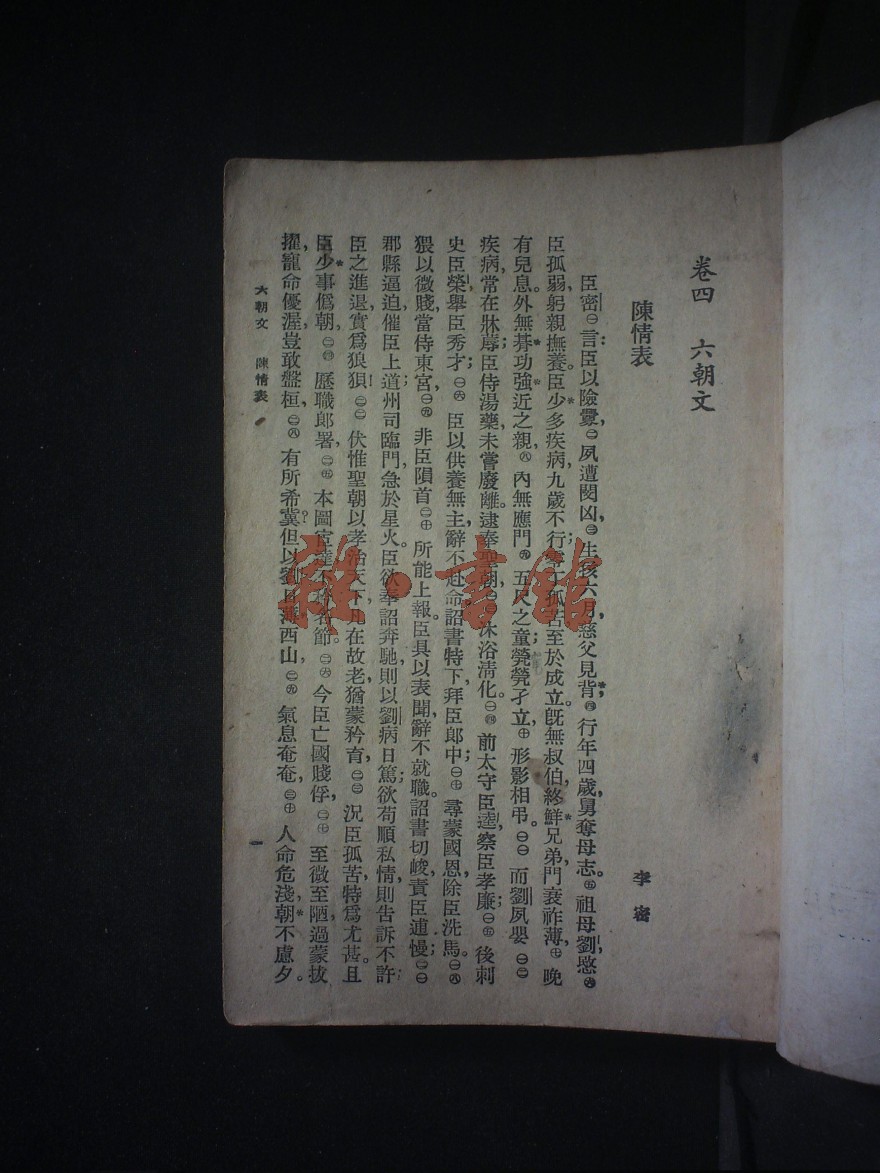 卷四　六朝文
陳情表　李密
臣密㊀言臣以險釁㊁夙遭閔凶㊂生孩六月慈父見背㊃行年四歲舅奪母志㊄祖母劉愍㊅
臣孤弱躬親撫養。臣少多疾病，九歲不行零丁孤苦至於成立。旣無叔伯終鮮兄弟門衰祚薄㊆晚
有兒息。外無朞功強近之親㊇內無應門㊈五尺之童煢煢孑立㊉形影相弔。㊀㊀而劉夙嬰㊀㊁
疾病常在牀蓐臣侍湯藥未嘗廢離。逮奉聖朝沐浴清化。㊀㊃前太守臣逵，察臣孝廉；㊀㊄後刺
史臣榮舉臣秀才；㊀㊅臣以供養無主辭不赴命。詔書特下，拜臣郎中；㊀㊆尋蒙國恩除臣洗馬。㊀㊇
猥以微賤當侍東宮，㊀㊈非臣隕首㊁㊉所能上報。臣具以表聞，辭不就職。詔書切峻，責臣逋慢；㊁㊀
郡縣逼迫，催臣上道；州司臨門，急於星火。臣欲奉詔奔馳，則以劉病日篤；欲苟順私情，則告訴不許；
臣之進退，實爲狼狽！㊁㊁伏惟聖朝以孝治天下，凡在故老，猶蒙矜育，㊁㊂況臣孤苦，特爲尤甚。且
臣少事僞朝，㊁㊃歷職郎署，㊁㊄本圖宦達，不矜名節。㊁㊅今臣亡國賤俘，㊁㊆至微至陋，過蒙拔
擢，寵命優渥，豈敢盤桓，㊁㊇有所希冀？但以劉日薄西山，㊁㊈氣息奄奄，㊂㊉人命危淺，朝不慮夕。
六朝文　陳情表　一
雜·書館